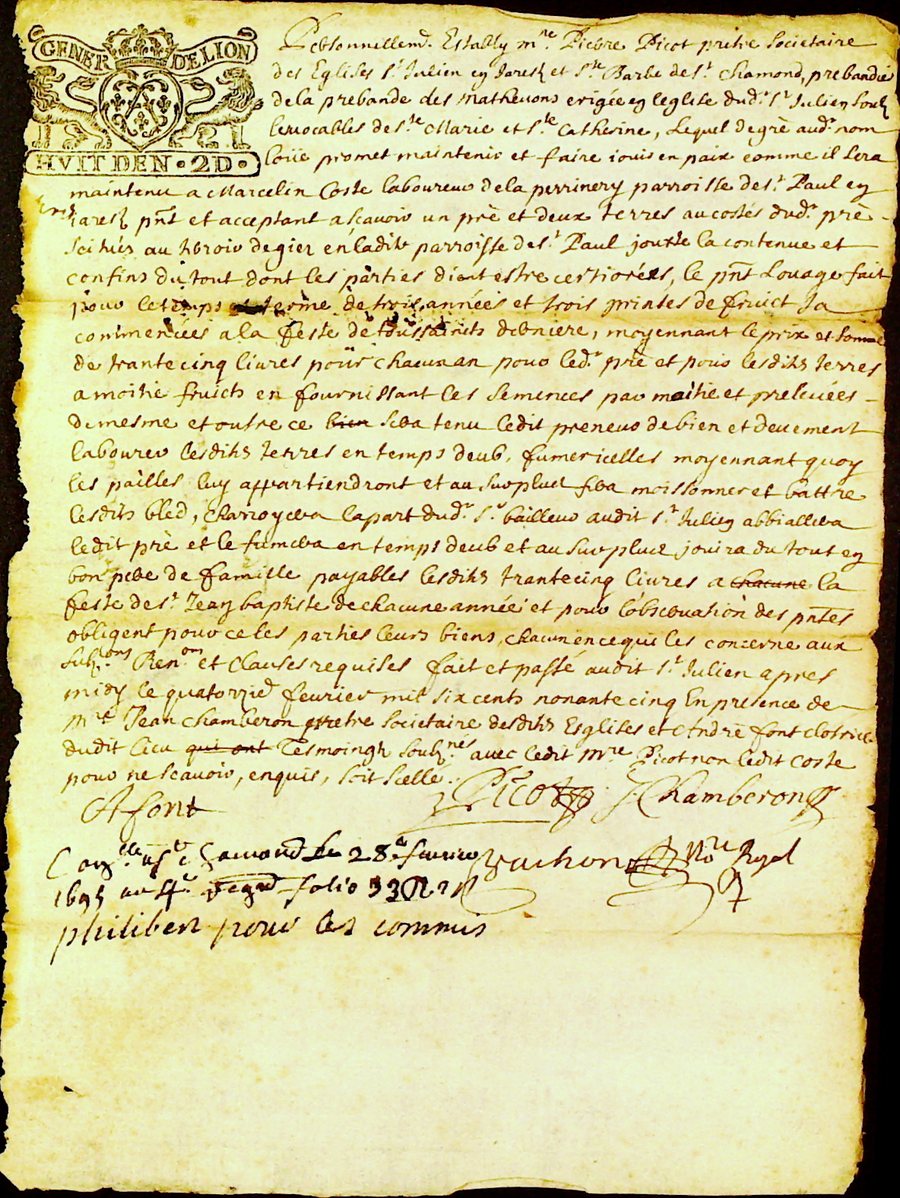 GENER DELION
HVIT DEN · 2D ·
Personnellemt. Estably mre Pierre Picot prêtre Societaire
des Eglises st Julien en Jarest et ste Barbe de st chamond, prebandié
de la prebande des matheuons erigée en leglise dudt st Julien soub
les vocables de ste Marie et ste Catherine, Lequel de gré audt nom
loüe promet maintenir et faire jouir en paix comme il sera
maintenu a Marcelin Coste laboureur de la perrinery parroisse de st Paul en
Jarest pnt et acceptant ascavoir un pré et deux terres au costés dudt pré -
scituées au de gier en ladite parroisse de st Paul jouxte la contenue et
confins du tout dont les parties d'estre certiorées, le pnt Louage fait
pour le temps et terme de trois années et trois prinses de fruict Ja
commencées a la feste de toussaincts derniere, moyennant le prix et somme
de trante cinq livres pour chacun an pour ledt pré et pour lesdits terres
a moitié fruicts en fournissant les semences par moitié et preleuées -
de mesme et outre ce bien sera tenu ledit preneur de bien et deuement
labourer lesdits terres en temps deub, fumer icelles moyennant quoy
les pailles luy appartiendront et au surplus fera moissonner et battre
lesdits bled, charroyera la part dudt sr bailleur audit st Julien abbiallera
ledit pré et le fumera en temps deub et au surplus jouira du tout en
bon pere de famille payables lesdits trante cinq livres a chacune la
feste de st Jean baptiste de chacune année et pour l'observation des pntes
obligent pour ce les parties leurs biens, chacun en ce qui les concerne aux
subons Renons et clauses requises fait et passé audit st Julien apres
midy le quatorzie fevrier mil six cents nonante cinq En presence de
mre Jean chamberon prêtre societaire desdits Esglises et André font
dudit lieu qui ont Tesmoingts soubznés avec ledit mre Picot non ledit coste
pour ne scavoir, enquis, soit scelle.
Picot J Chamberon
A font
Vachon Nore Royal
le 28e fevrier
1695 au 4e folio 33
philibert pour les commis